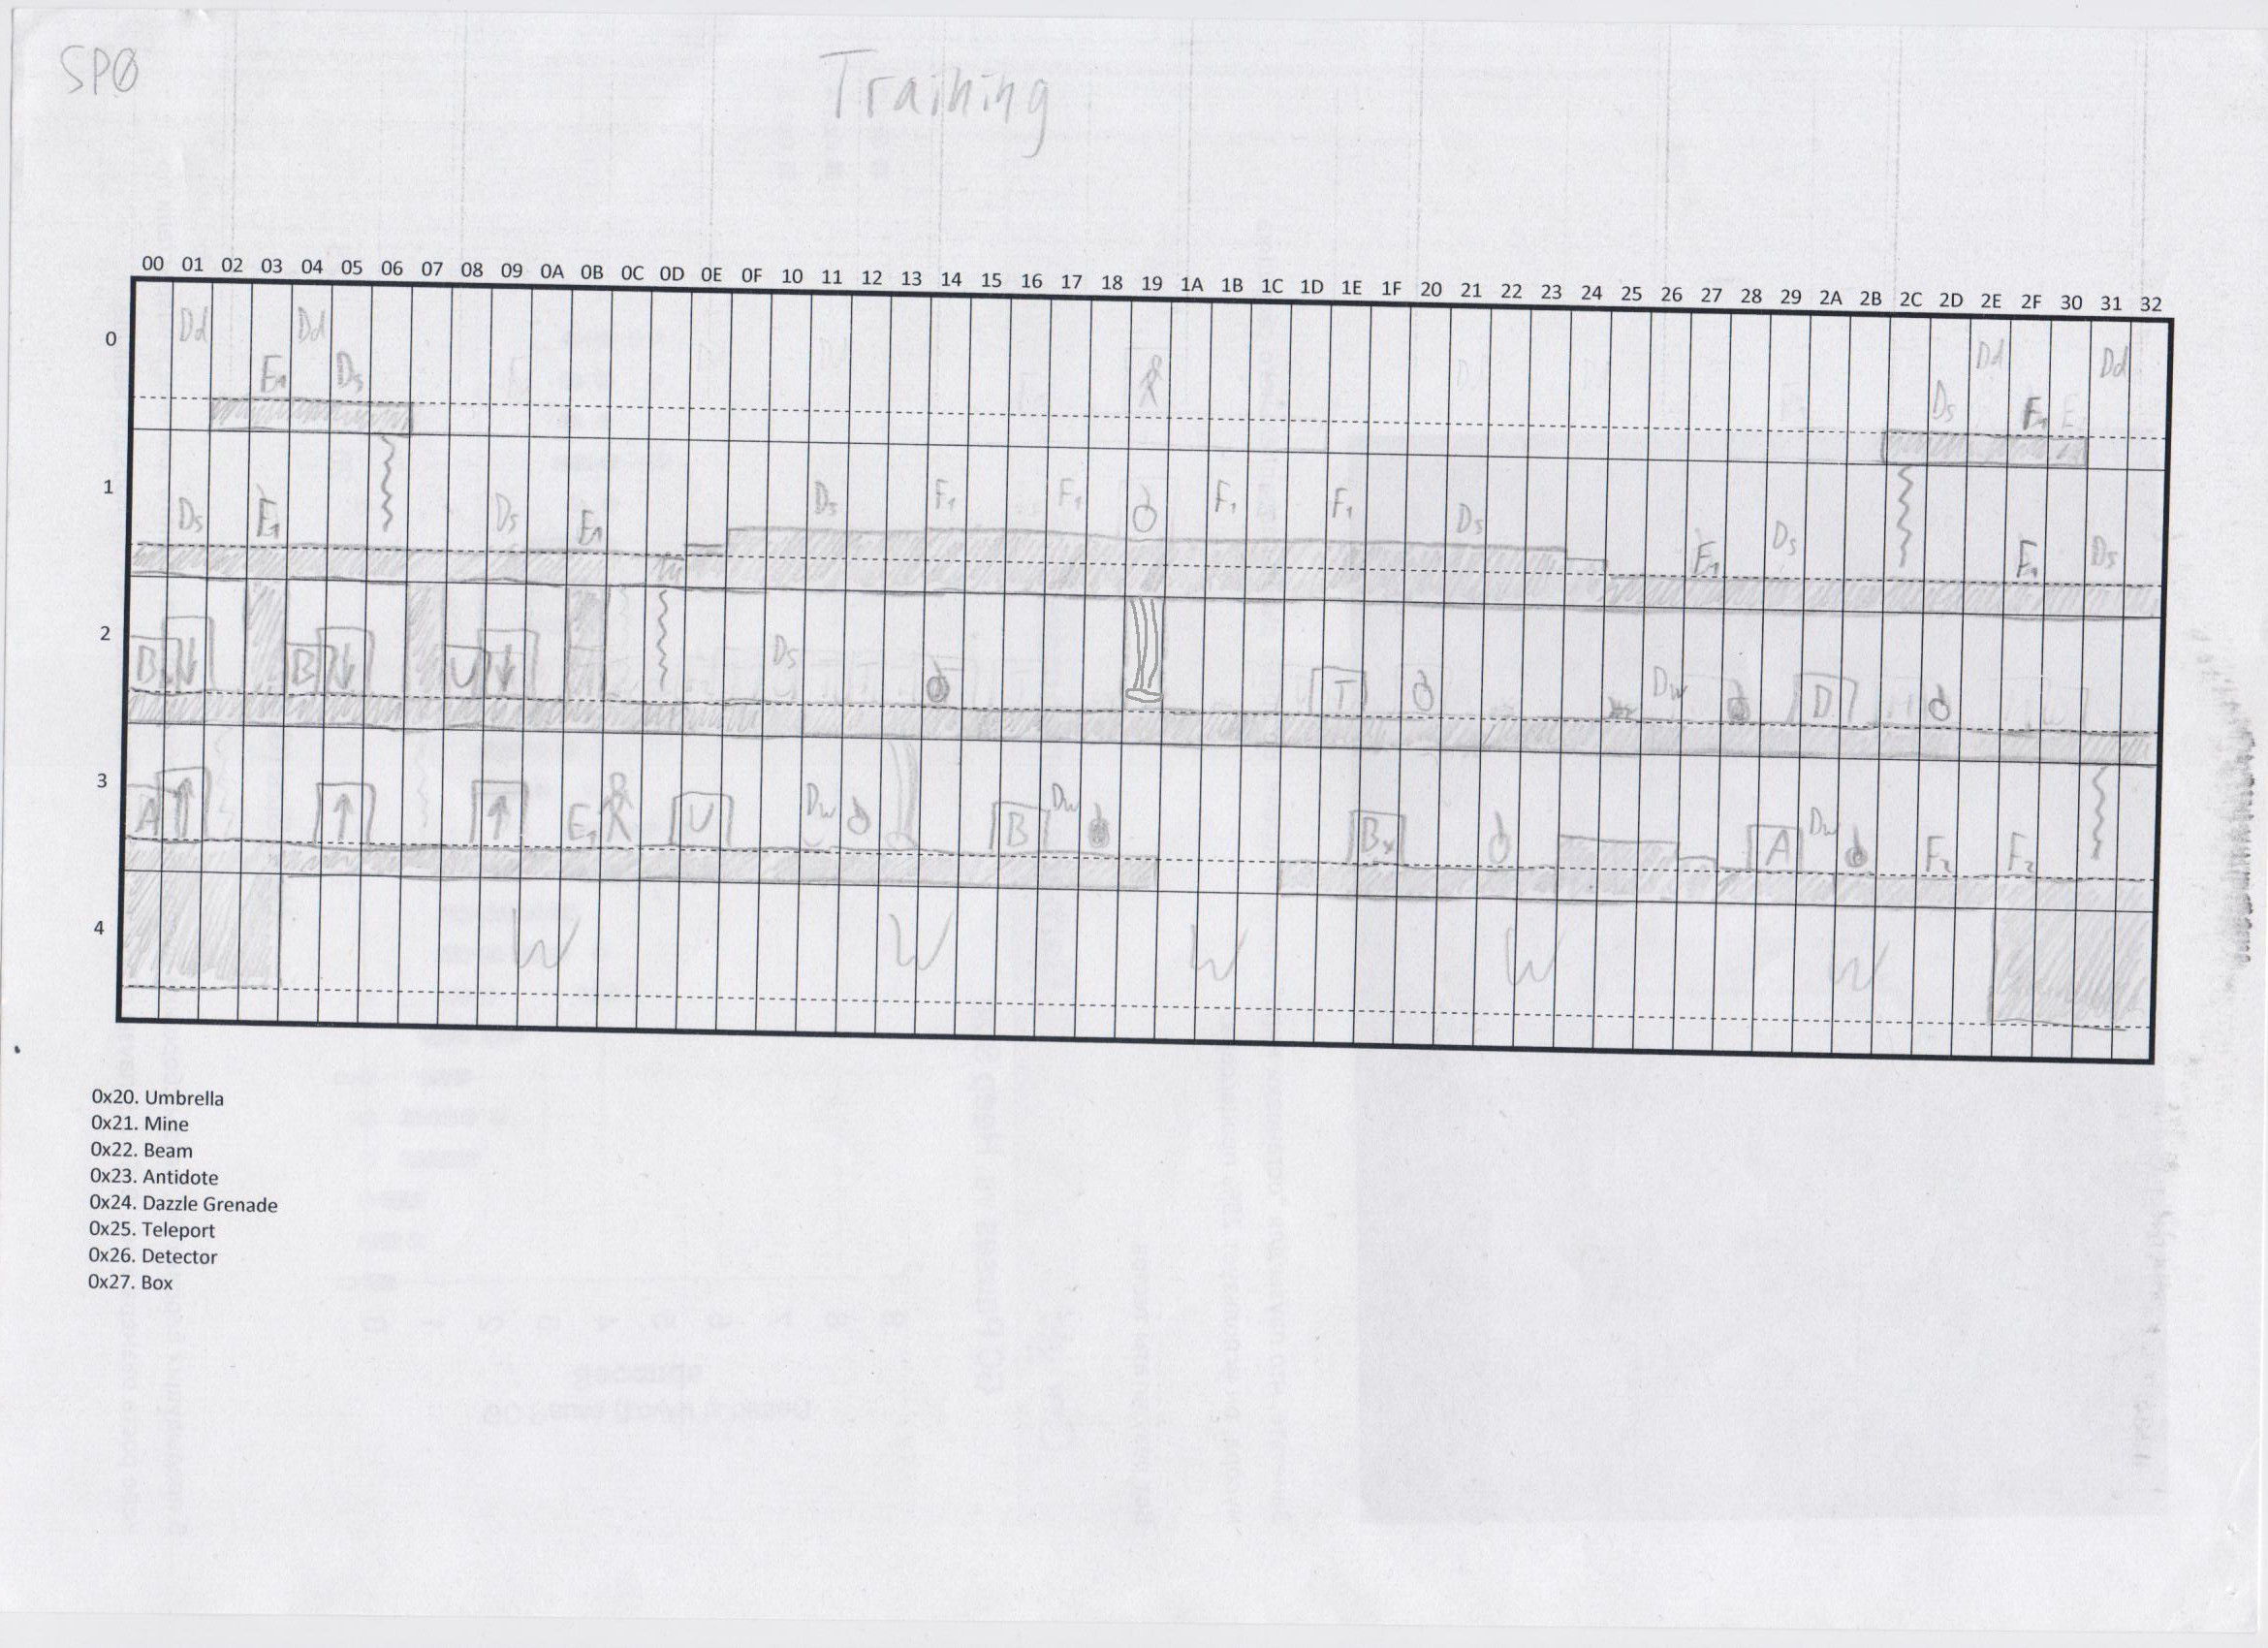 SPØ
Training
00 01 02 03 04 05 06 07 08 09 0A 0B 0C 0D 0E 0F 10 11 12 13 14 15 16 17 18 19 1A 1B 1C 1D 1E 1F 20 21 22 23 24 25 26 27 28 29 2A 2B 2C 2D 2E 2F 30 31 32
0
Dd Dd Dd Dd
E1 Ds Ds E1
1
Ds E1 Ds E1 Ds F1 F1 F1 F1 Ds E1 Ds F1 Ds
2
B B U Ds T Dw D
3
A E1 U Dw B Dw Bx A Dw F2 F2
4
W W W W W
0x20. Umbrella
0x21. Mine
0x22. Beam
0x23. Antidote
0x24. Dazzle Grenade
0x25. Teleport
0x26. Detector
0x27. Box